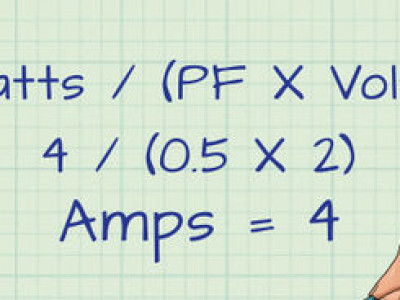 atts / (PF X Vol
4 / (0.5 X 2)
Amps = 4